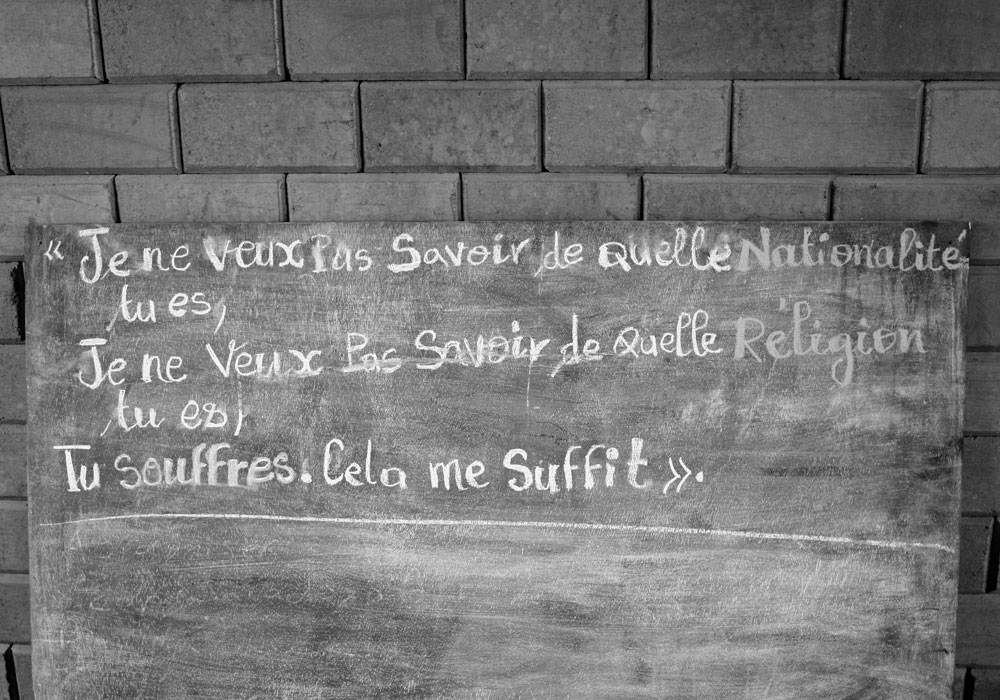 « Je ne veux Pas Savoir de quelle Nationalité
tu es,
Je ne Veux Pas Savoir de quelle Réligion
tu es,
Tu souffres. Cela me Suffit ».